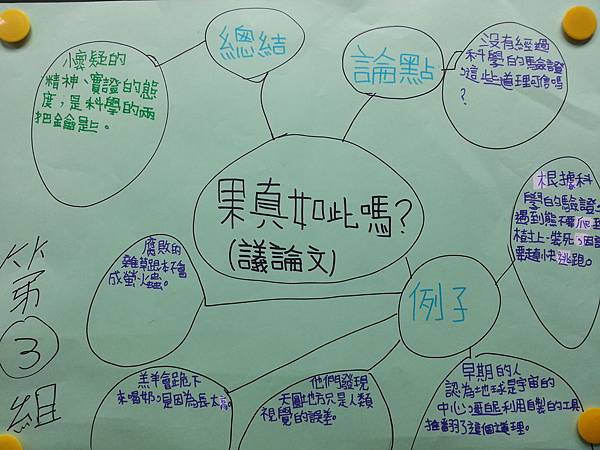 總結
懷疑的
精神、實證的態
度,是科學的兩
把鑰匙。
論點
沒有經過
科學的驗證
,這些道理可信嗎
?
果真如此嗎?
(議論文)
例子
根據科
學的驗證,
遇到熊不要爬
樹上、裝死,因
要趕快逃跑。
腐敗的
雜草跟本不會
成螢火蟲。
羔羊會跪下
來喝奶,是因為長太高。
他們發現
天圓地方只是人類
視覺的誤差。
早期的人
認為地球是宇宙的
中心,利用自製的工具
推翻了這個道理。
第
3
組